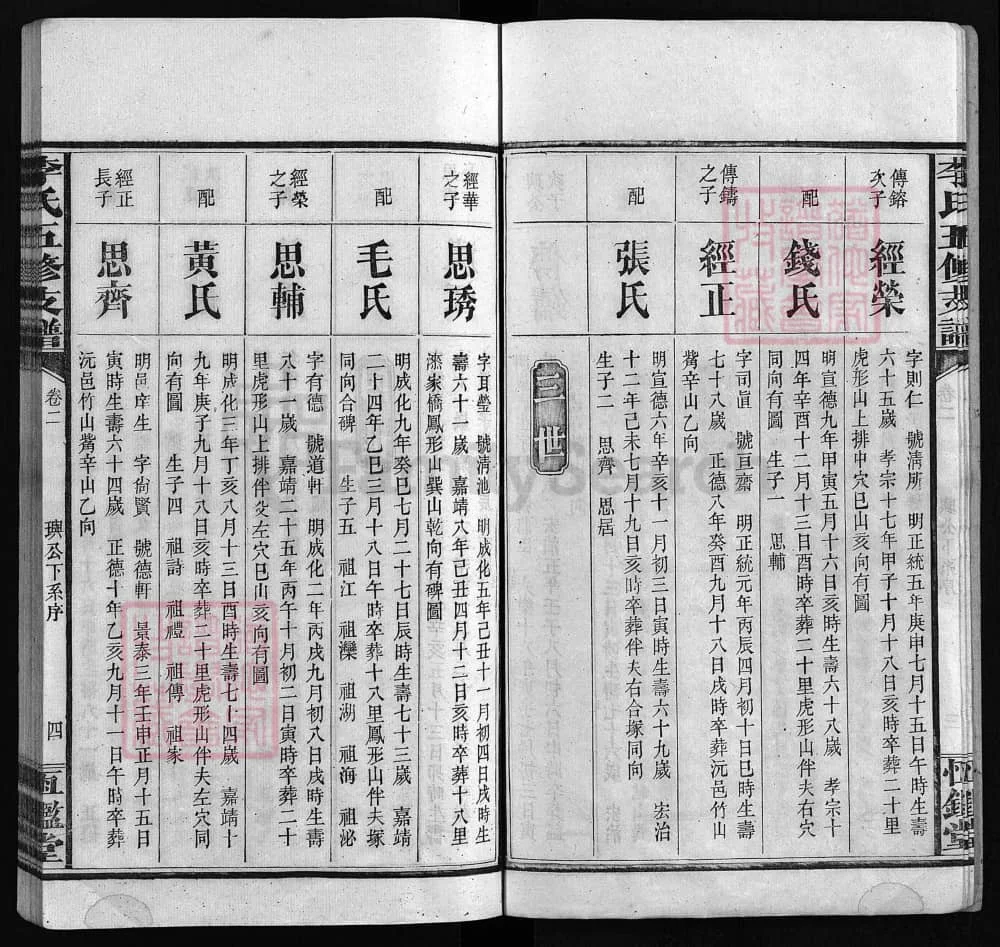 李氏五修支譜
卷二
恒鑑堂
傳鎔
次子
經榮
字則仁 號清所 明正統五年庚申七月十五日午時生壽
六十五歲 孝宗十七年甲子十月十八日亥時卒葬二十里
虎形山上排中穴巳山亥向有圖
配
錢氏
明宣德九年甲寅五月十六日亥時生壽六十八歲 孝宗十
四年辛酉十二月十三日酉時卒葬二十里虎形山伴夫右穴
同向有圖 生子一 思輔
傳鑄
之子
經正
字司直 號亘齋 明正統元年丙辰四月初八日戌時生壽
七十八歲 正德八年癸酉九月十八日戌時卒葬沅邑竹山
觜辛山乙向
配
張氏
明宣德六年辛亥十一月初三日寅時生壽六十九歲 宏治
十二年己未七月十九日亥時卒葬伴夫右合塚同向
生子二 思齊 思居
三世
經華
之子
思琇
字耳瑩 號清池 明成化五年己丑十一月初四日戌時生
壽六十一歲 嘉靖八年己丑四月十二日亥時卒葬十八里
家僑鳳形山巽山乾向有碑圖
配
毛氏
明成化九年癸巳七月二十七日辰時生壽七十三歲 嘉靖
二十四年乙巳三月十八日午時卒葬十八里鳳形山伴夫塚
同向合碑 生子五 祖江 祖灤 祖湖 祖海 祖泌
經榮
之子
思輔
字有德 號道軒 明成化二年丙戌九月初八日戌時生壽
八十一歲 嘉靖二十五年丙午十月初二日寅時卒葬二十
里虎形山上排伴父左穴巳山亥向有圖
配
黃氏
明成化三年丁亥八月十三日酉時生壽七十四歲 嘉靖十
九年庚子九月十八日亥時卒葬二十里虎形山伴夫左穴同
向有圖 生子四 祖詩 祖禮 祖傳 祖家
經正
長子
思齊
明邑庠生 字尙賢 號德軒 景泰三年壬申正月十五日
寅時生壽六十四歲 正德十年乙亥九月十一日午時卒葬
沅邑竹山觜辛山乙向
李氏五修支譜
卷二
璵公下系序
四
恒鑑堂